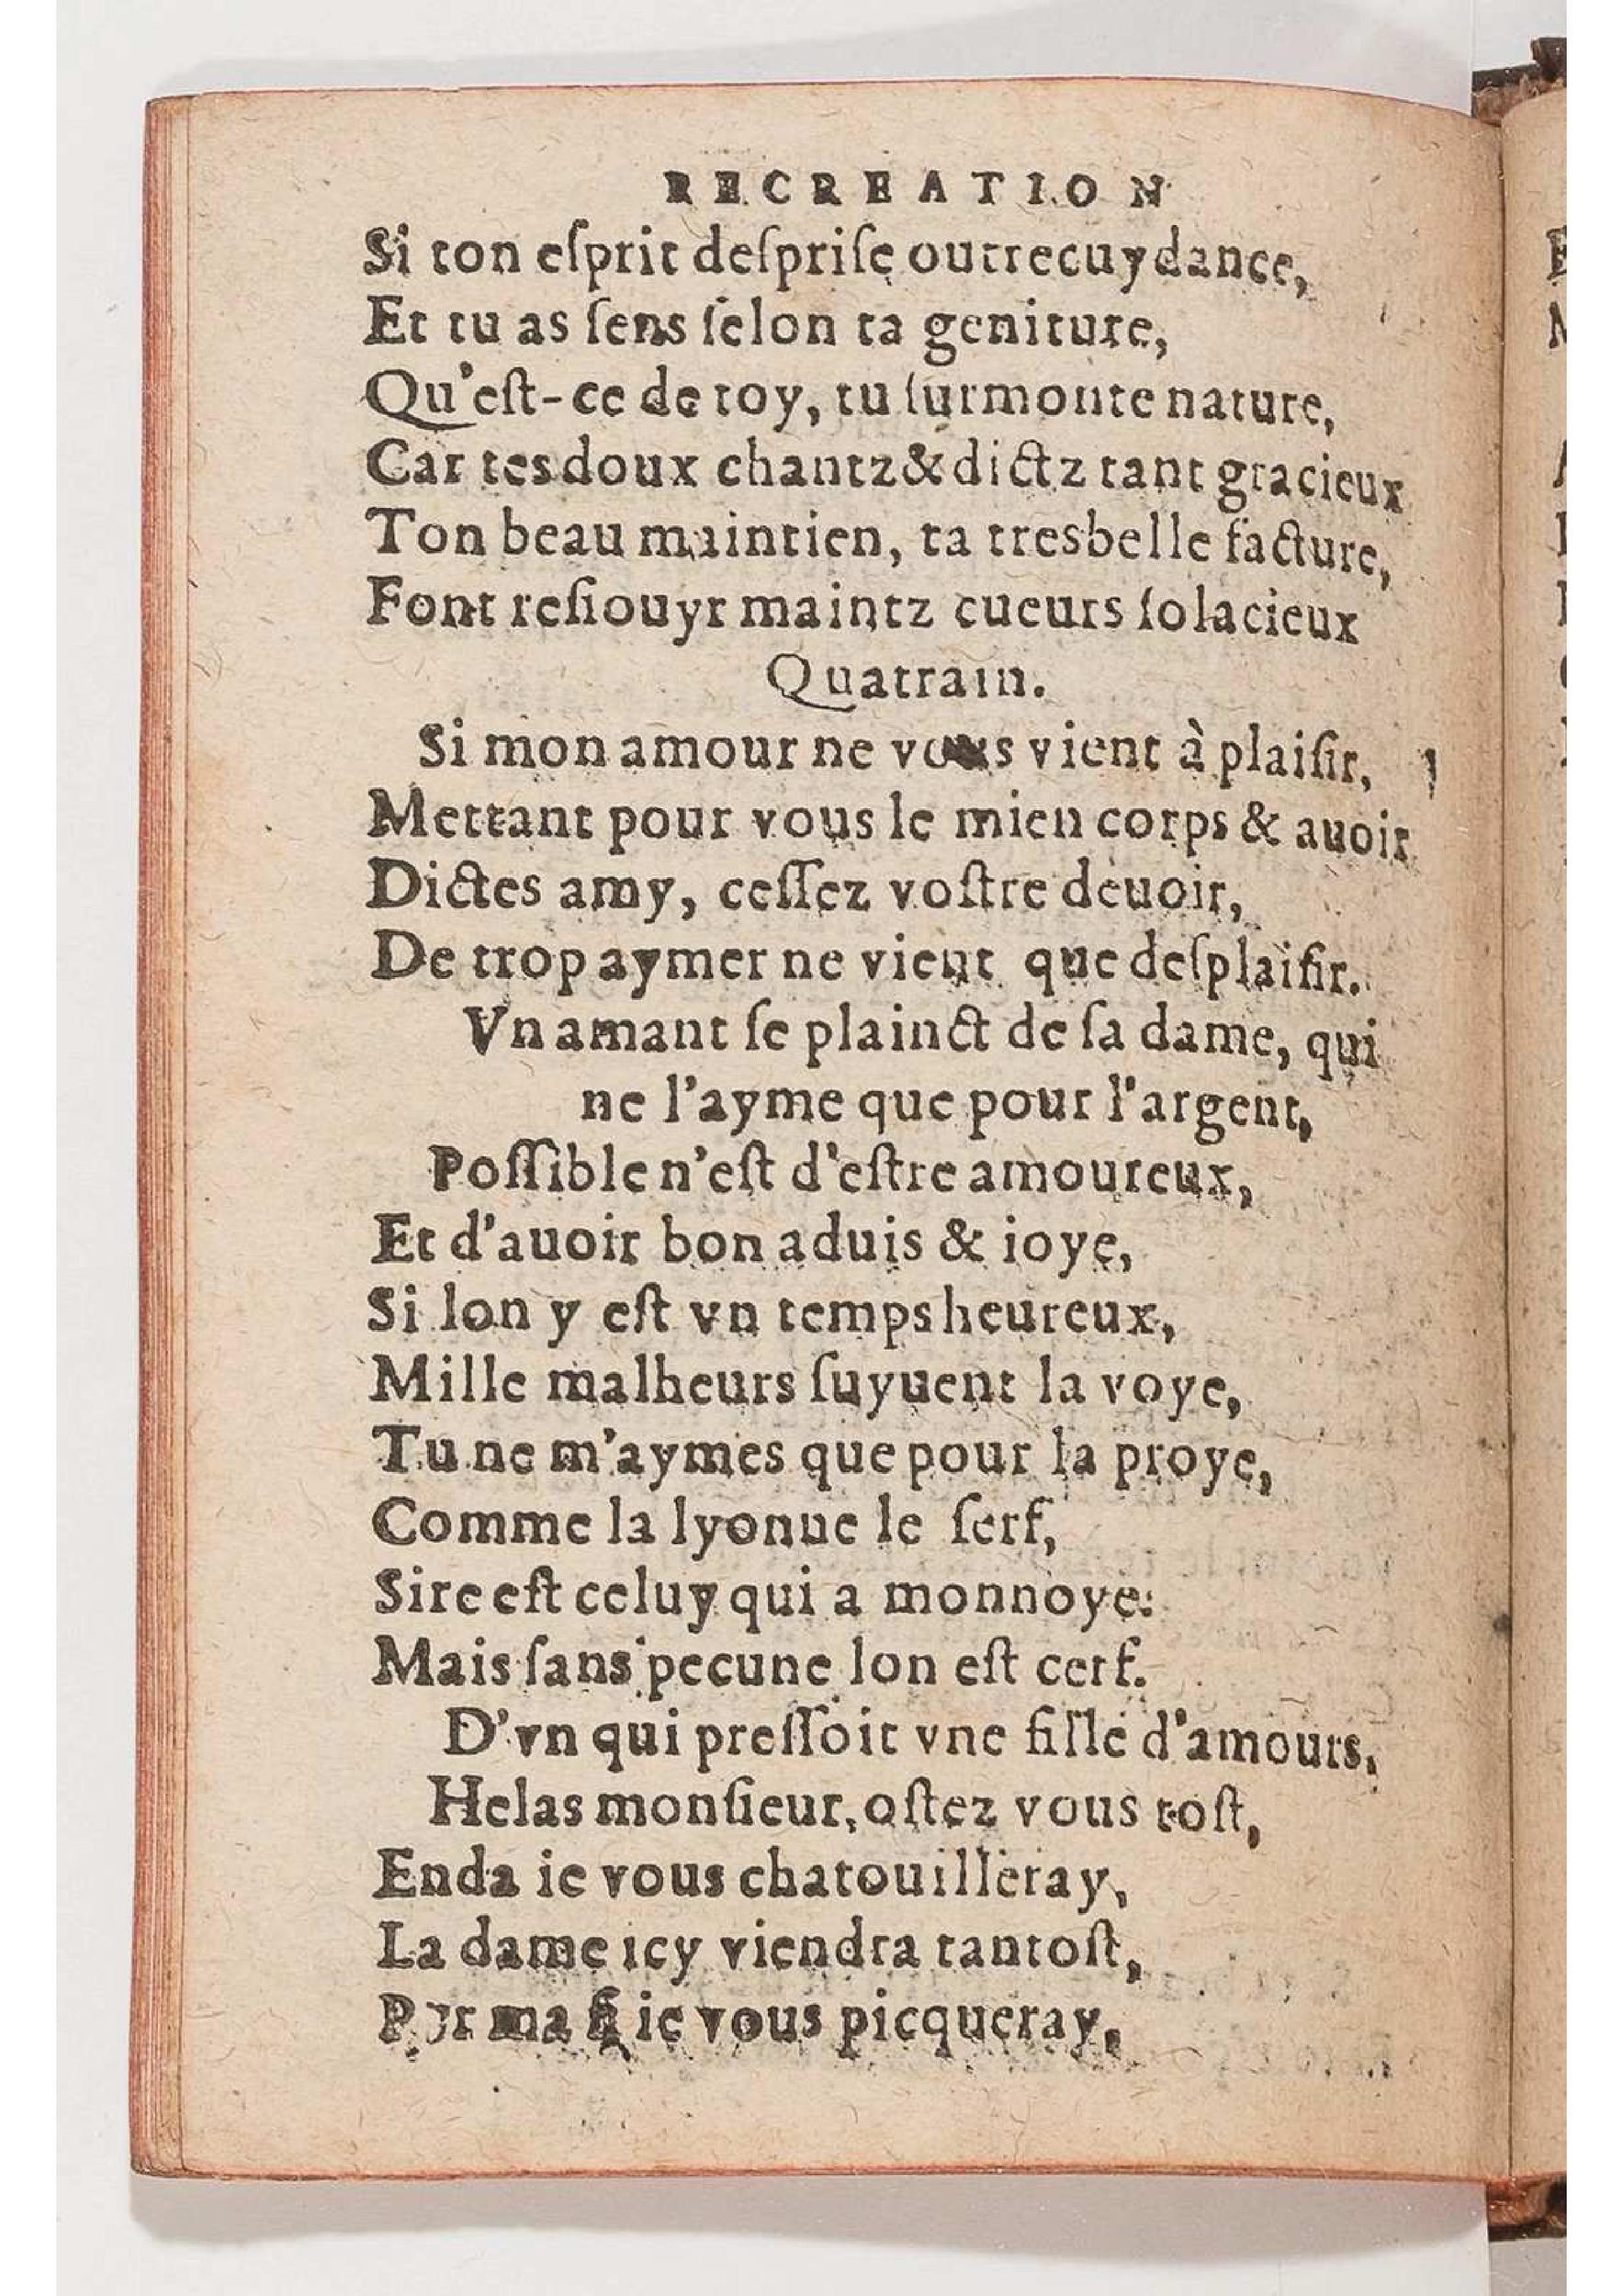 RECREATION
Si ton eſprit deſpriſe outrecuydance,
Et tu as ſens ſelon ta geniture,
Qu'eſt-ce de toy, tu ſurmonte nature,
Car tes doux chantz & dictz tant gracieux
Ton beau maintien, ta tresbelle facture,
Font reſiouyr maintz cueurs ſolacieux
Quatrain.
Si mon amour ne vous vient à plaiſir,
Mettant pour vous le mien corps & auoir
Dictes amy, ceſſez voſtre deuoir,
De trop aymer ne vient que deſplaiſir.
Vn amant ſe plainct de ſa dame, qui
ne l'ayme que pour l'argent,
Poſſible n'eſt d'eſtre amoureux,
Et d'auoir bon aduis & ioye,
Si lon y eſt vn temps heureux,
Mille malheurs ſuyuent la voye,
Tu ne m'aymes que pour la proye,
Comme la lyonne le ſerf,
Sire eſt celuy qui a monnoye:
Mais ſans pecune lon eſt cerf.
D'vn qui preſſoit vne fille d'amours.
Helas monſieur, oſtez vous toſt,
Enda ie vous chatouilleray,
La dame icy viendra tantoſt,
Par ma ie vous picqueray,